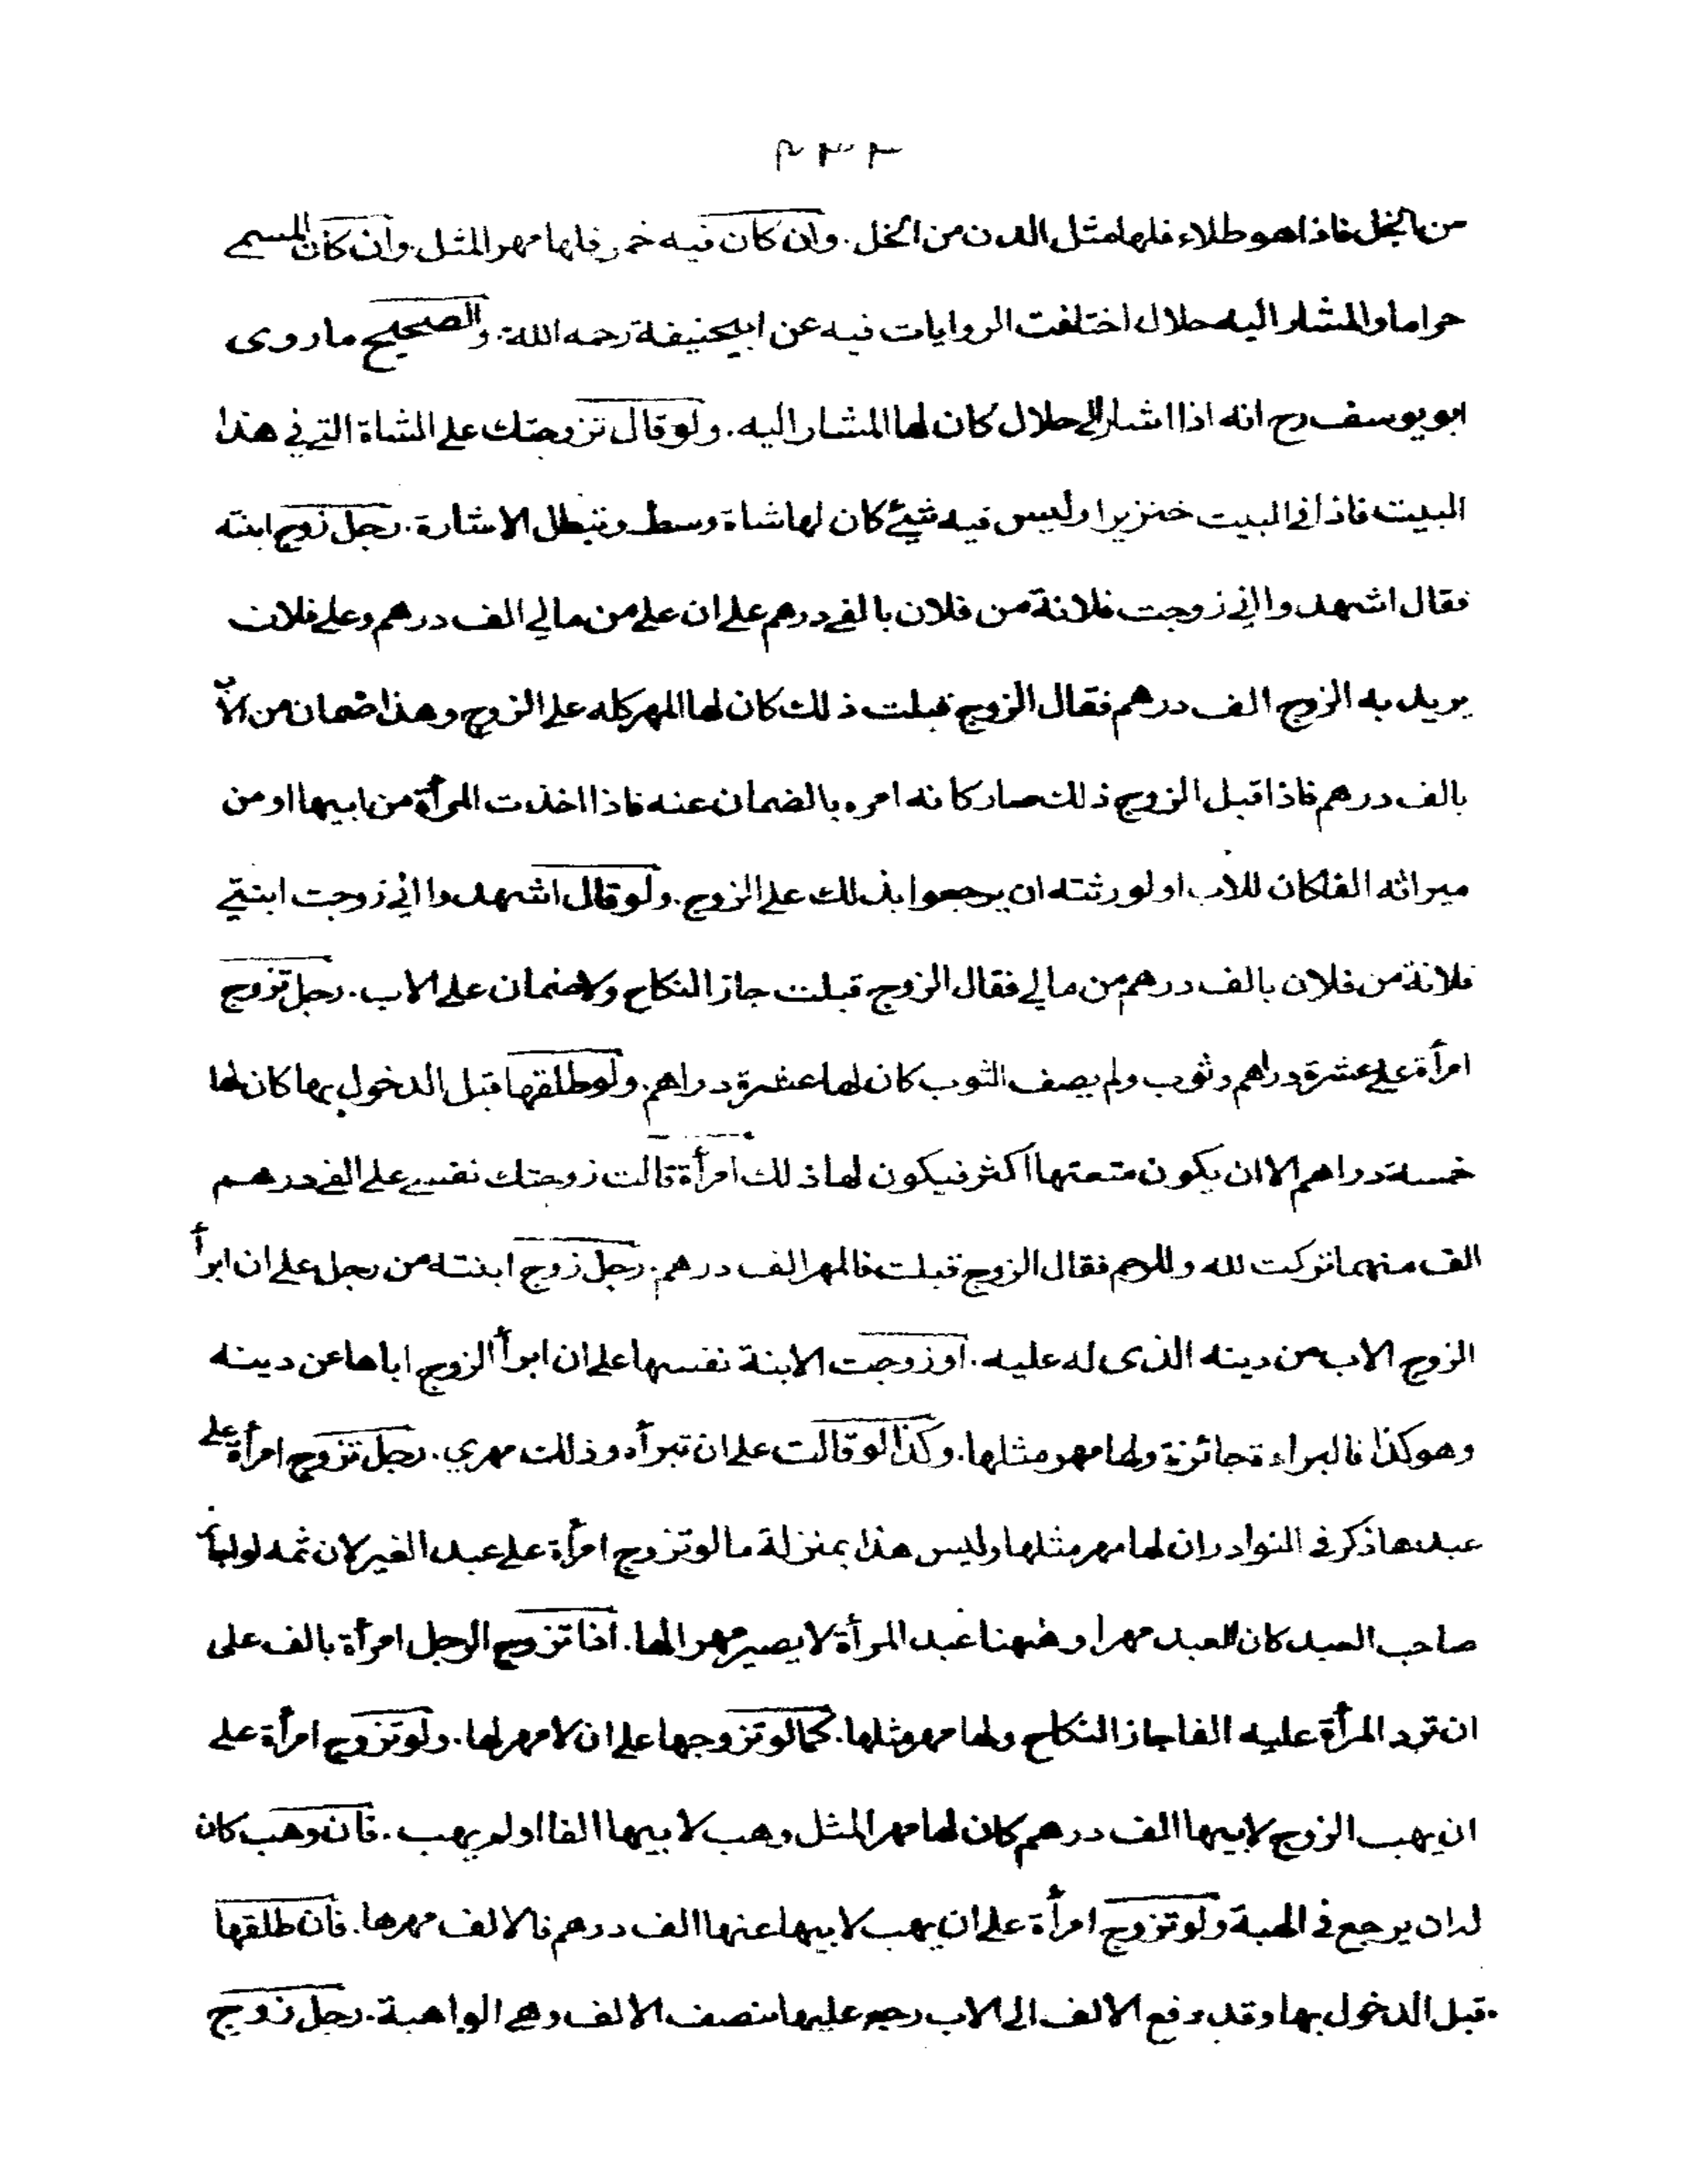 ٢٣٣
من الخل فاذا هو طلاء فلها مثل الدن من الخل. وان كان فيه خمر فلها مهر المثل. وان كان المسمى
حراما والمشار اليه حلال اختلفت الروايات فيه عن ابيحنيفة رحمه الله. والصحيح ما روى
ابو يوسف رح انه اذا اشار الى حلال كان لها المشار اليه. ولو قال تزوجتك على الشاة التي في هذا
البيت فاذا في البيت خنزير او ليس فيه شيئ كان لها شاة وسط وتبطل الاشارة. رجل زوج ابنته
فقال اشهدوا اني زوجت فلانة من فلان بالفي درهم على ان علي من مالي الف درهم وعلى فلان
يريد به الزوج الف درهم فقال الزوج قبلت ذلك كان لها المهر كله على الزوج وهذا ضمان من الاب
بالف درهم فاذا قبل الزوج ذلك صار كانه امره بالضمان عنه فاذا اخذت المرأة من ابيها او من
ميراثه الفا كان للاب او لورثته ان يرجعوا بذلك على الزوج. ولو قال اشهدوا اني زوجت ابنتي
فلانة من فلان بالف درهم من مالي فقال الزوج قبلت جاز النكاح ولا ضمان على الاب. رجل تزوج
امرأة على عشرة دراهم وثوب ولم يصف الثوب كان لها عشرة دراهم. ولو طلقها قبل الدخول بها كان لها
خمسة دراهم الا ان يكون متعتها اكثر فيكون لها ذلك امرأة قالت زوجتك نفسي على الفي درهم
الف منهما تركت لله وللرحم فقال الزوج قبلت فالمهر الف درهم. رجل زوج ابنته من رجل على ان ابرأ
الزوج الاب من دينه الذى له عليه. او زوجت الابنة نفسها على ان ابرأ الزوج اباها عن دينه
وهو كذا فالبراءة جائزة ولها مهر مثلها. وكذا لو قالت على ان تبرأه وذلك مهري. رجل تزوج امرأة على
عبدها ذكر في النوادر ان لها مهر مثلها وليس هذا بمنزلة ما لو تزوج امرأة على عبد الغير لان ثمه لو
صاحب العبد كان العبد مهرا وههنا عبد المرأة لا يصير مهرا لها. اذا تزوج الرجل امرأة بالف على
ان ترد المرأة عليه الفا جاز النكاح ولها مهر مثلها. كما لو تزوجها على ان لا مهر لها. ولو تزوج امرأة على
ان يهب الزوج لابيها الف درهم كان لها مهر المثل وهب لابيها الفا او لم يهب. فان وهب كان
له ان يرجع في الهبة ولو تزوج امرأة على ان يهب لابيها عنها الف درهم فالالف مهرها. فان طلقها
قبل الدخول بها وقد دفع الالف الى الاب رجع عليها بنصف الالف وهي الواهبة. رجل زوج